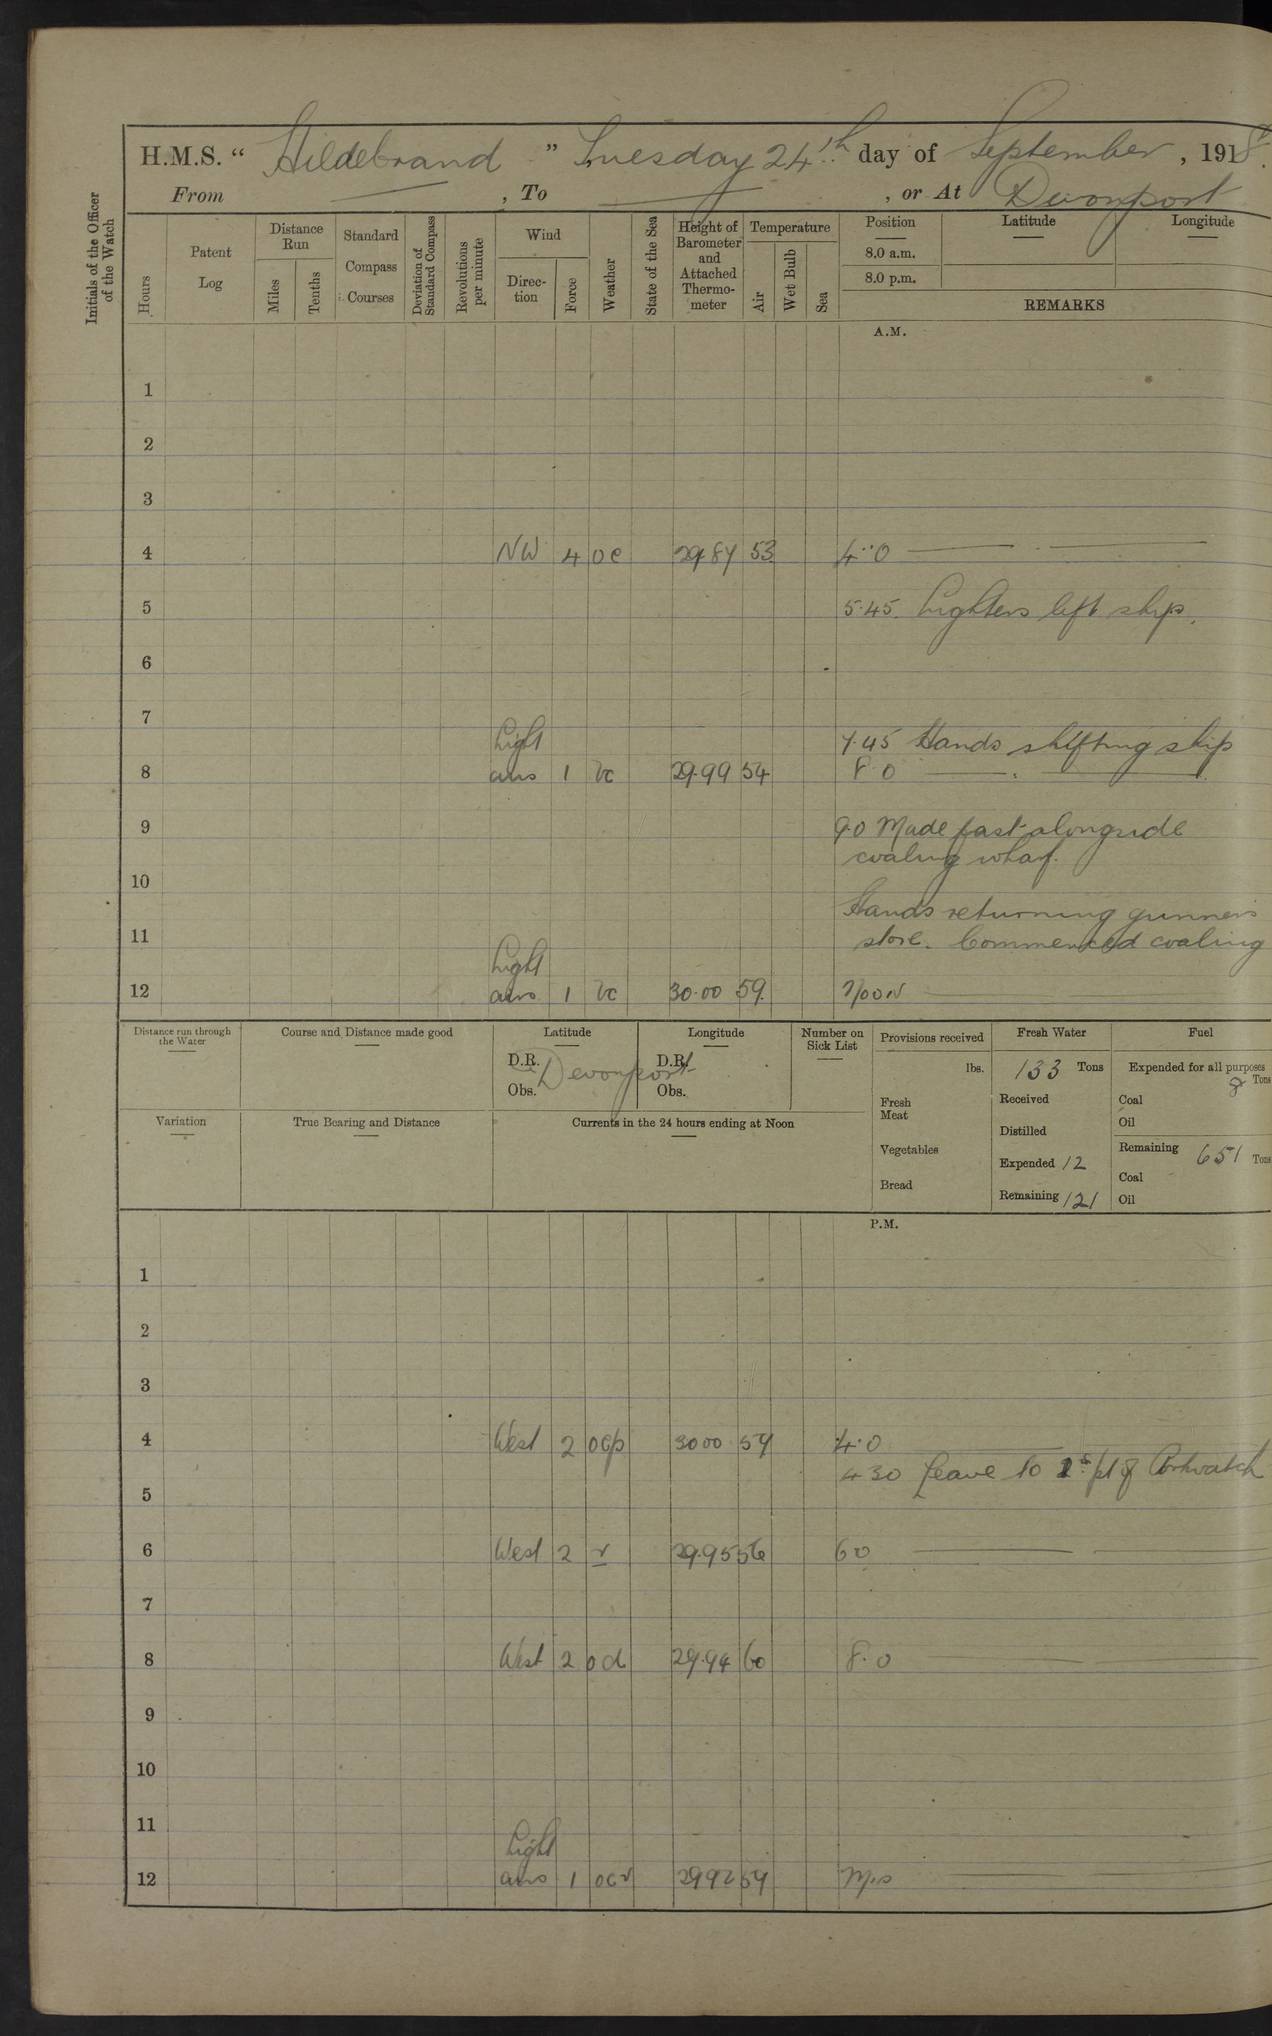 H.M.S. “ Hildebrand ” Tuesday 24th day of September , 1918.
From — , To — , or At Devonport
Initials of the Officer of the Watch
Hours
Patent Log
Distance Run
Miles
Tenths
Standard Compass Courses
Deviation of Standard Compass
Revolutions per minute
Wind
Direction
Force
Weather
State of the Sea
Height of Barometer and Attached Thermometer
Temperature
Air
Wet Bulb
Sea
Position
8.0 a.m.
8.0 p.m.
Latitude
Longitude
REMARKS
A.M.
1
2
3
4 NW 4 oc 29.87 53 4.0 —
5 5.45. Lighters left ship.
6
7
Light 7.45 Hands shifting ship
8 airs 1 bc 29.99 54 8.0 —
9 9.0 Made fast alongside
coaling wharf.
10
Hands returning gunners
11 store. Commenced coaling
Light
12 airs 1 bc 30.00 59 Noon —
Distance run through the Water
Course and Distance made good
Latitude
D.R. Devonport
Obs.
Longitude
D.R.
Obs.
Number on Sick List
Provisions received
lbs.
Fresh Meat
Vegetables
Bread
Fresh Water
133 Tons
Received
Distilled
Expended 12
Remaining 121
Fuel
Expended for all purposes
8 Tons
Coal
Oil
Remaining 651 Tons
Coal
Oil
Variation
True Bearing and Distance
Currents in the 24 hours ending at Noon
P.M.
1
2
3
4 West 2 ocp 30 00 57 4.0
4 30 Leave to 1st pt of Port watch
5
6 West 2 r 29.95 56 6 0 —
7
8 West 2 od 29.94 60 8.0 —
9
10
11
Light
12 airs 1 ocr 29 92 57